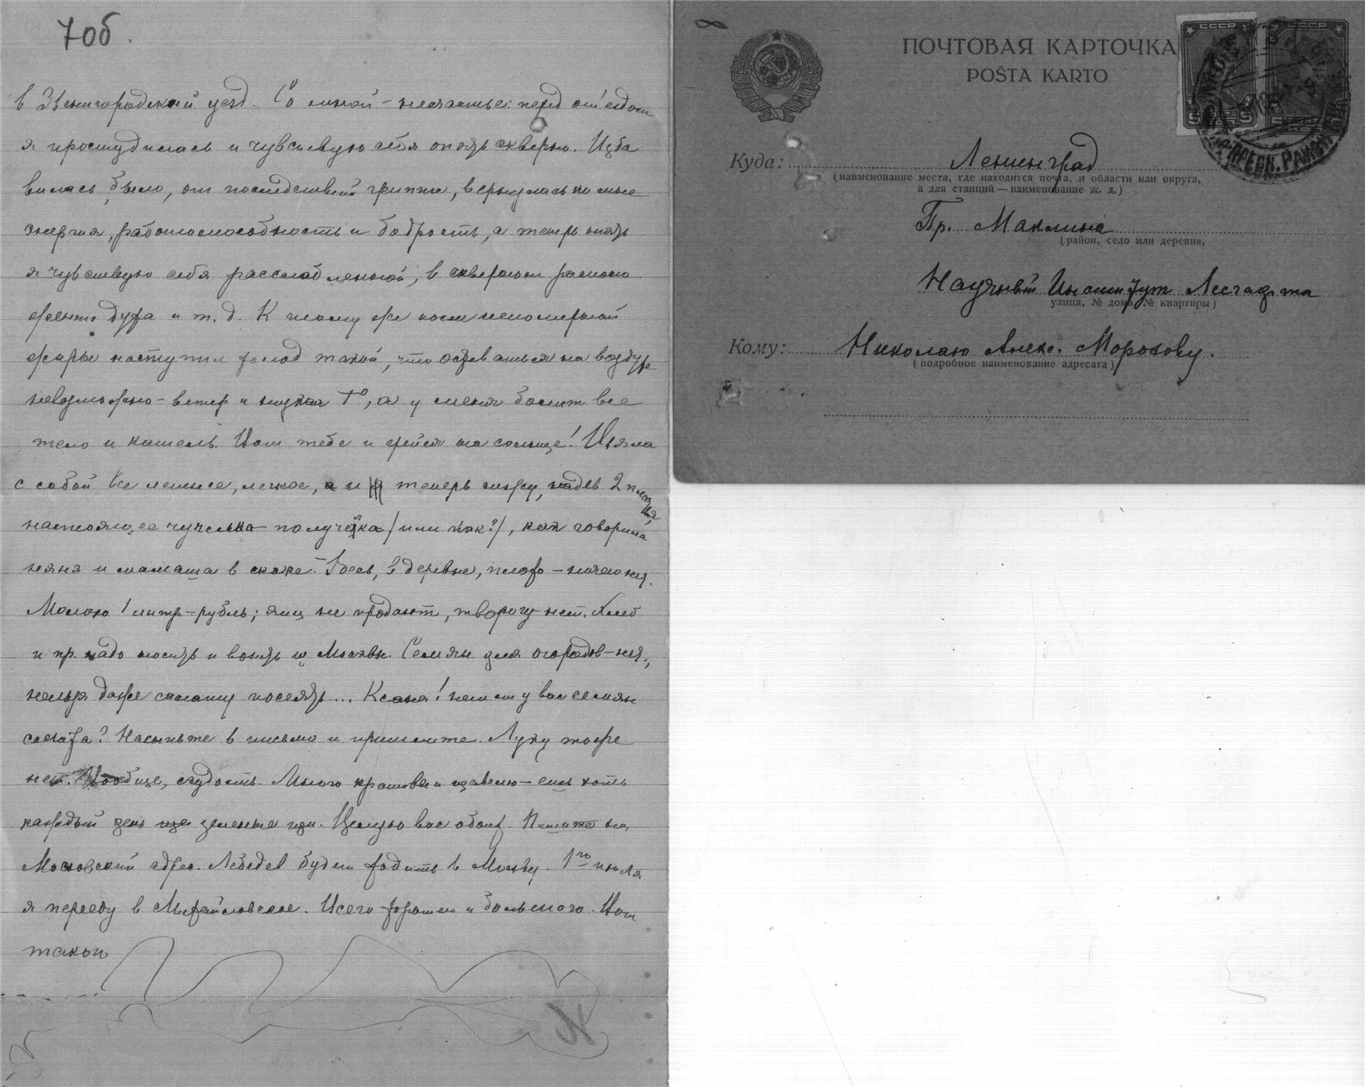 7об.
в Звенигородский уезд. Со мной – несчастье: перед от'ездом
я простудилась и чувствую себя опять скверно. Изба
вилась было, от последствий гриппа, вернулась ко мне
энергия, работоспособность и бодрость, а теперь опять
я чувствую себя расслабленной, в скверном располо
жении духа и т. д. К тому же после непомерной
жары наступил холод такой, что оставаться на воздухе
невозможно – ветер и низкая t°, а у меня болит все
тело и кашель. Вот тебе и грейся на солнце! Взяла
с собой все летнее, легкое, и теперь сижу, надев 2 платья,
настоящее чучелка – получёлка (или как?), как говорила
няня и мамаша в сказке. Здесь, в деревне, плохо – ничего нет.
Молоко 1 литр – рубль; яиц не продают, творогу нет. Хлеб
и пр. надо носить и возить из Москвы. Семян для огородов – нет,
нельзя даже салату посеять... Ксана! нет ли у вас семян
салата? Насыпьте в письмо и пришлите. Луку тоже
нет. Вообще, скудость. Много крапивы и щавелю – ешь хоть
каждый день зеленые щи. Целую вас обоих. Пишите на
Московский адрес. Лебедев будет ходить в Москву. 1го июля
я перееду в Михайловское. Всего хорошего и большого. Вот
такой
8
ПОЧТОВАЯ КАРТОЧКА
POŜTA KARTO
СССР СССР
Куда: Ленинград
(наименование места, где находится почта, и области или округа,
а для станций — наименование ж. д.)
Пр. Маклина
(район, село или деревня,
Научный Институт Лесгафта
улица, № дома, № квартиры)
Кому: Николаю Алекс. Морозову.
(подробное наименование адресата)